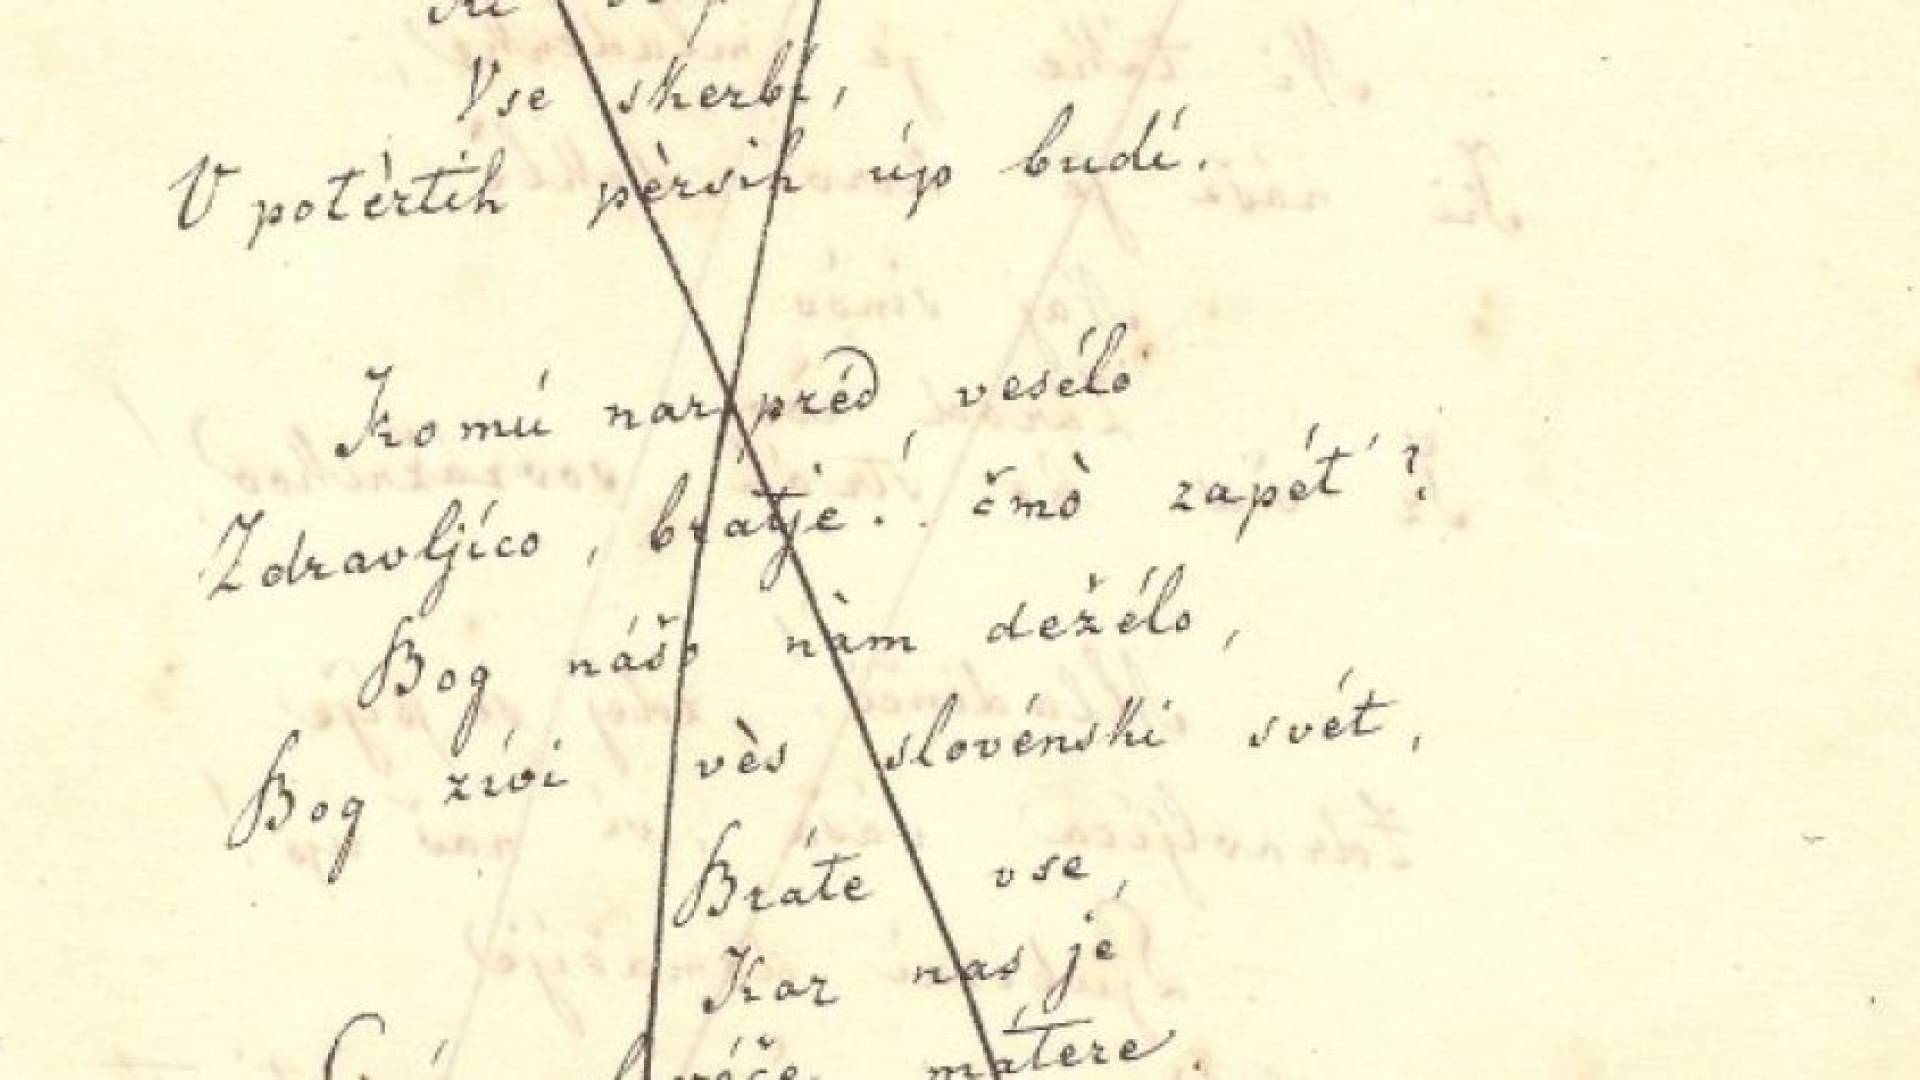 Vse skerbi,
V potèrtih pèrsih úp budí.
Komú narpréd vesélo
Zdravljíco, brátje! čmò zapét'?
Bog nášo nàm dežélo,
Bog zívi vès slovénski svét,
Bráte vse,
Kar nas je
matere.